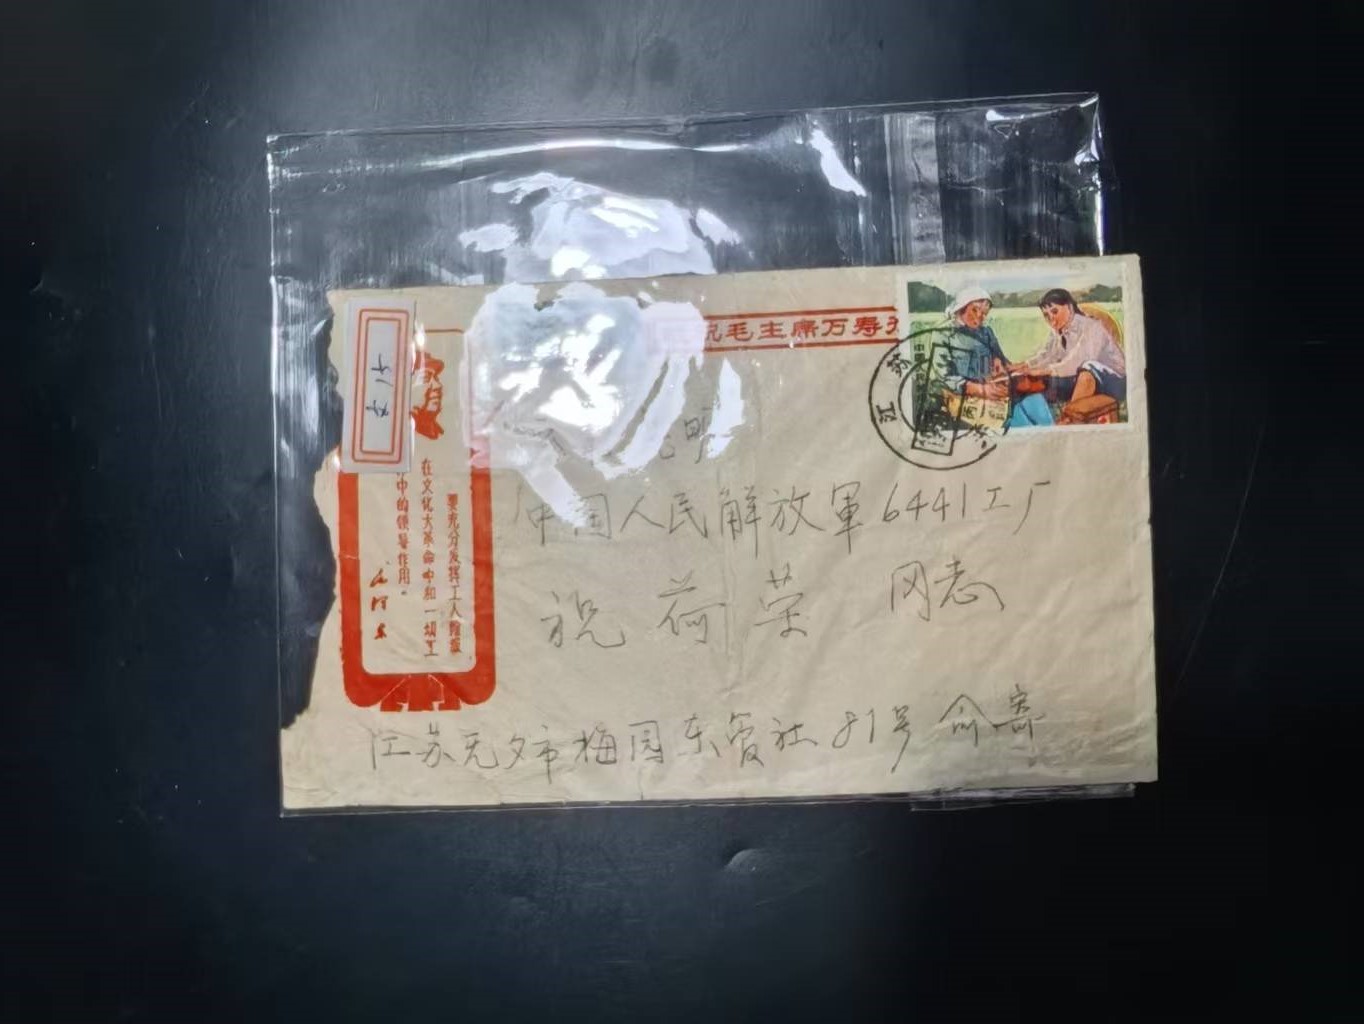 祝毛主席万寿无
要充分发挥工人阶级
在文化大革命中和一切工
中的领导作用。
毛泽东
江苏
明
中国人民解放軍6441工厂
祝荷荣 同志
江苏无夕市梅园东管社81号 俞寄